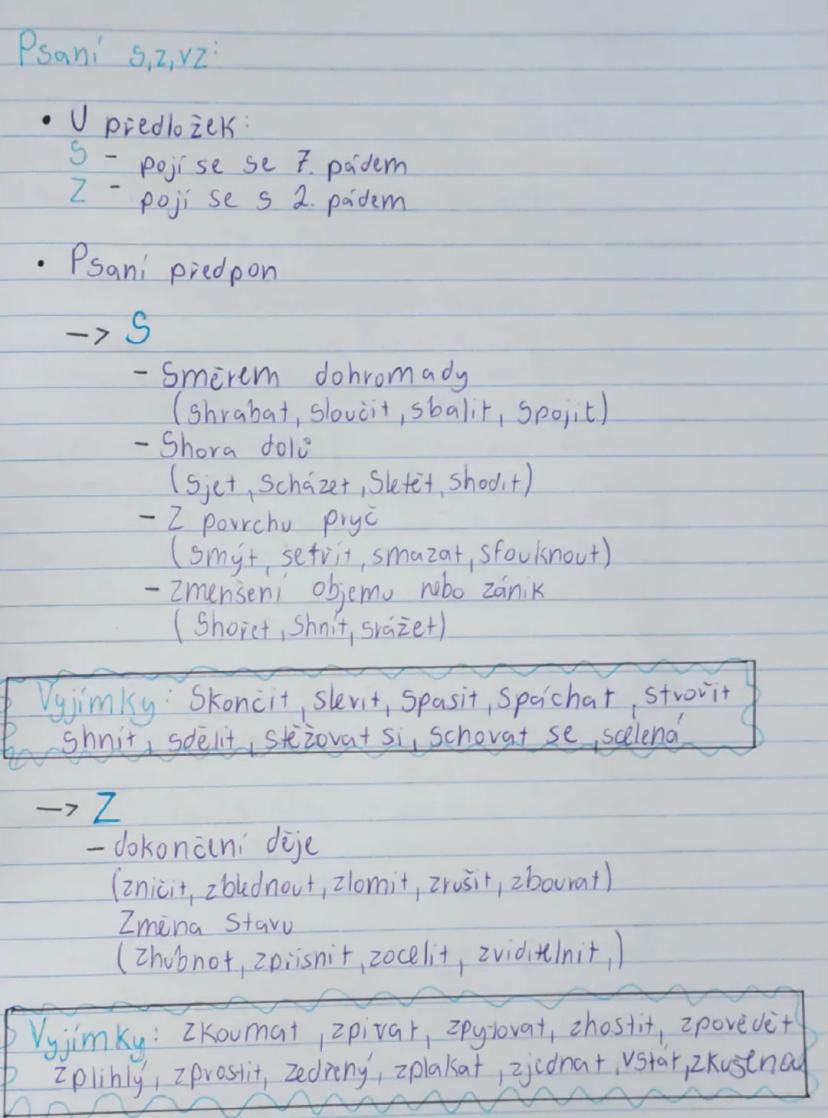 Psaní s,z,vz:
• U předložek:
S - pojí se se 7. pádem
Z - pojí se s 2. pádem
• Psaní předpon
-> S
- Směrem dohromady
(shrabat, sloučit, sbalit, spojit)
- Shora dolů
(sjet, scházet, sletět, shodit)
- Z povrchu pryč
(smýt, setřít, smazat, sfouknout)
- zmenšení objemu nebo zánik
(shořet, shnít, srážet)
Vyjímky: skončit, slevit, spasit, spáchat, stvořit
shnít, sdělit, stěžovat si, schovat se, scelená
-> Z
- dokončení děje
(zničit, zblednout, zlomit, zrušit, zbourat)
Změna stavu
(zhubnot, zpřísnit, zocelit, zviditelnit,)
Vyjímky: zkoumat, zpívat, zpytovat, zhostit, zpovědět
zplihlý, zprostit, zedřený, zplakat, zjednat, vstát, zkušená